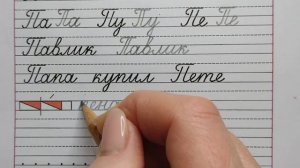 Па Па Пу Пу Пе Пе
Павлик Павлик
Папа купил Пете